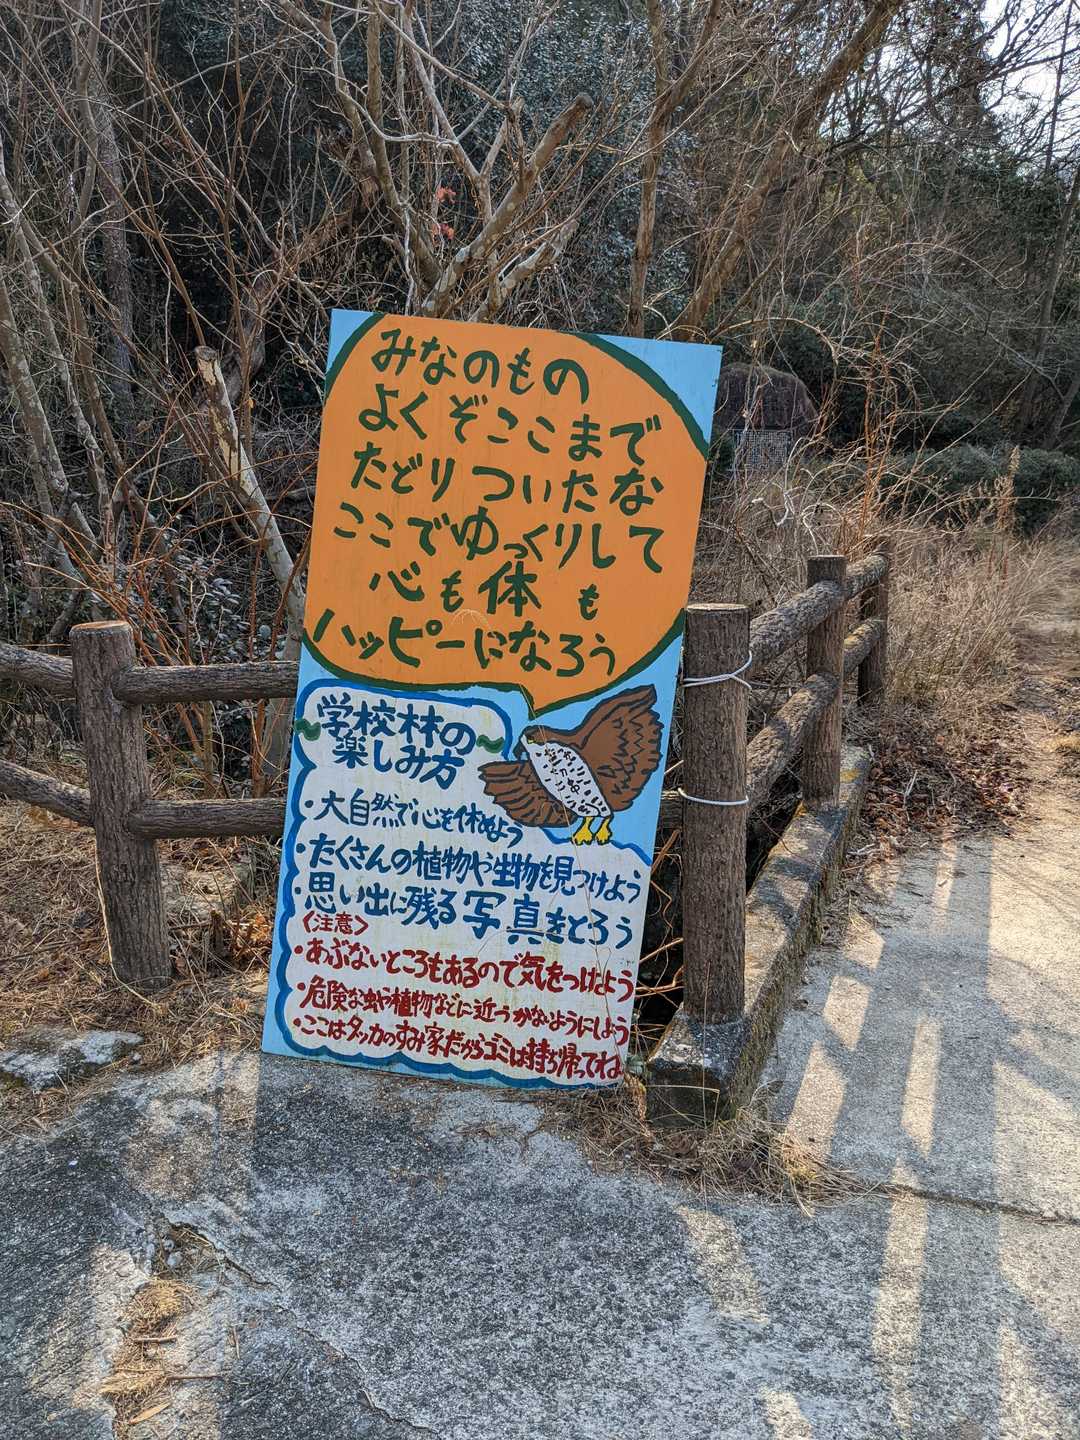 みなのもの
よくぞここまで
たどりついたな
ここでゆっくりして
心も体も
ハッピーになろう
~学校林の~
楽しみ方
・大自然で心を休めよう
・たくさんの植物や生物を見つけよう
・思い出に残る写真をとろう
〈注意〉
・あぶないところもあるので気をつけよう
・危険な虫や植物などに近づかないようにしよう
・ここはタッカのすみ家だからゴミは持ち帰ってね